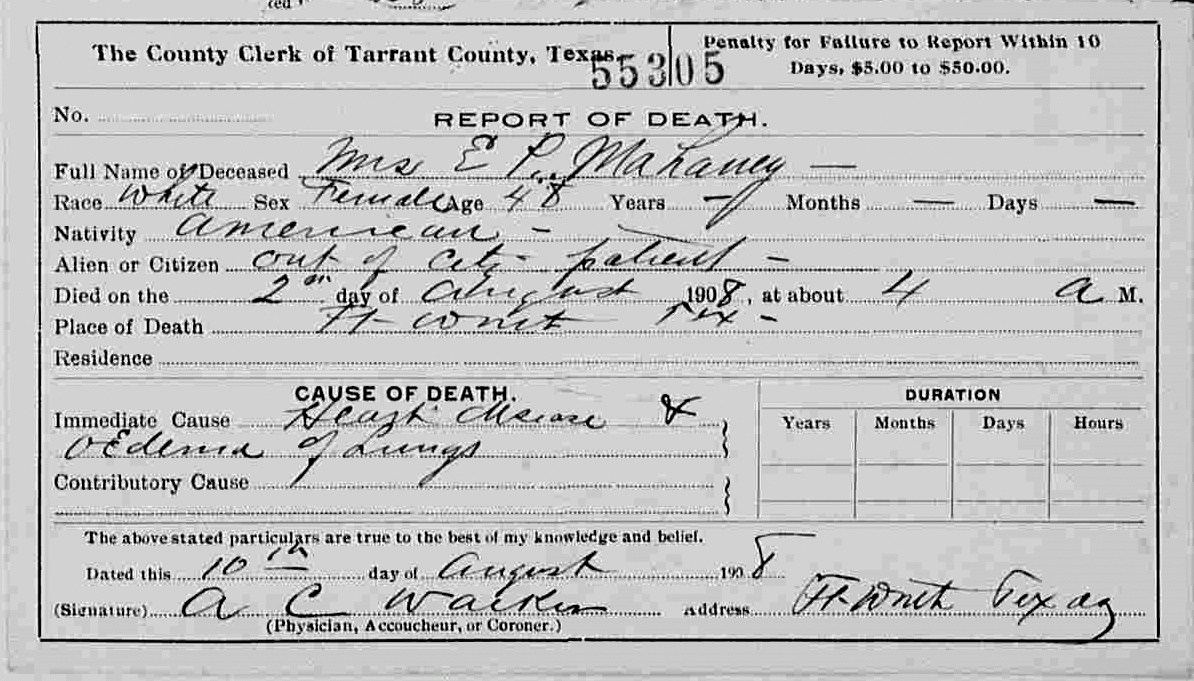 The County Clerk of Tarrant County, Texas. Penalty for Failure to Report Within 10
55305 Days, $5.00 to $50.00.
No. REPORT OF DEATH.
Full Name of Deceased Mrs E P. Mahaney —
Race White Sex Female Age 48 Years — Months — Days —
Nativity American –
Alien or Citizen out of city patient –
Died on the 2nd day of August 1908, at about 4 A M.
Place of Death Ft Worth Tex –
Residence
CAUSE OF DEATH. DURATION
Immediate Cause Heart disease & Years Months Days Hours
OEdema of Lungs
Contributory Cause
The above stated particulars are true to the best of my knowledge and belief.
Dated this 10th day of August 1908
(Signature) A C Walker Address Ft Worth Texas
(Physician, Accoucheur, or Coroner.)